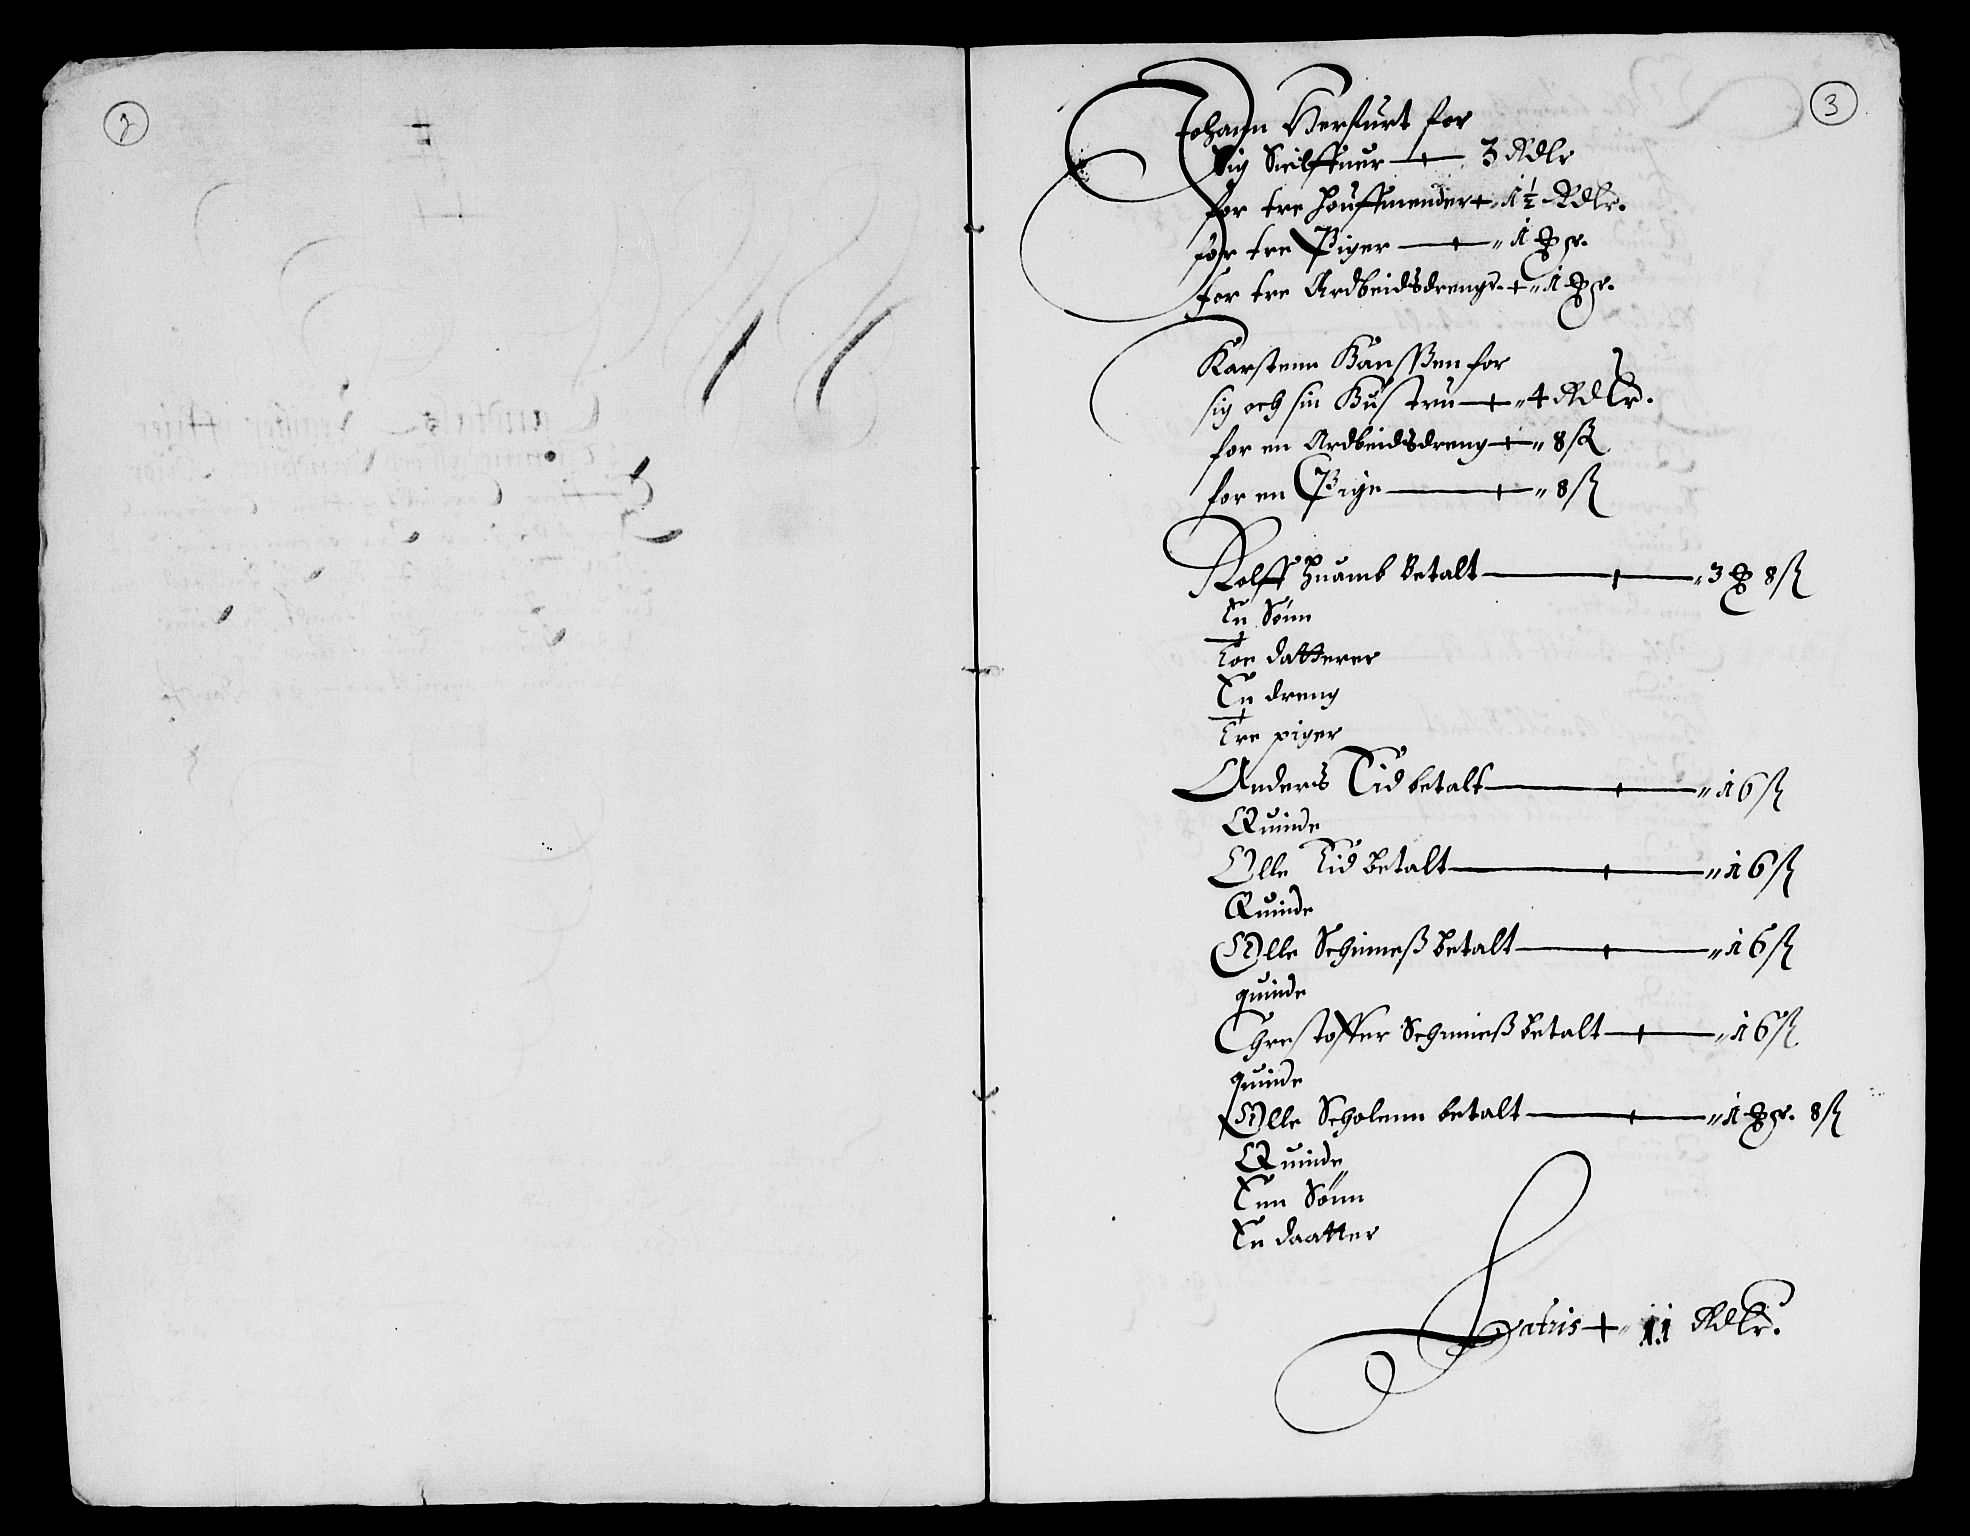 2
3
Johann Verfurt for
Sig Sielffuer 3 Rdlr
for tre houffmender 1½ Rdlr.
for tre Piger 1
for tre Ardbeidsdrenge 1
Karstenn Hanssßen for
sig och sin Hustru 4 Rdlr.
for en Ardbeidsdreng 8 ß
for en Pige 8 ß
Rolff betalt 3 8 ß
En Sönn
Toe datterer
En dreng
Tre piger
Anders Tid betalt 16 ß
Quinde
Olle Tid betalt 16 ß
Quinde
Olle betalt 16 ß
quinde
Chrestoffer betalt 16 ß
quinde
Olle Scholenn betalt 1 8 ß
Quinde
Enn Sönn
En daatter
Latris 11 Rdlr.